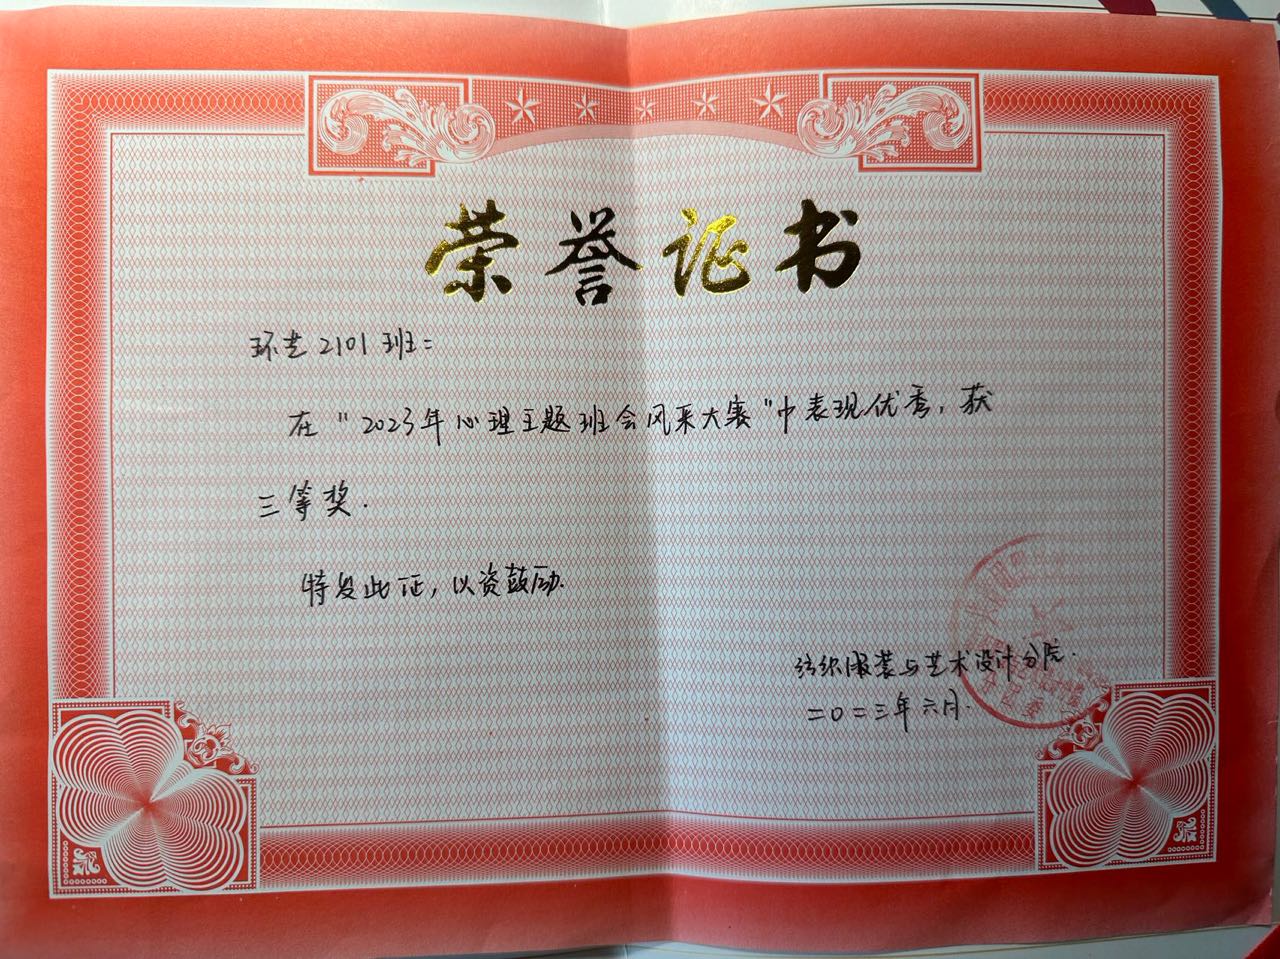 荣誉证书
环艺2101班：
在"2023年心理主题班会风采大赛"中表现优秀，获
三等奖．
特发此证，以资鼓励．
纺织服装与艺术设计分院．
二〇二三年六月．